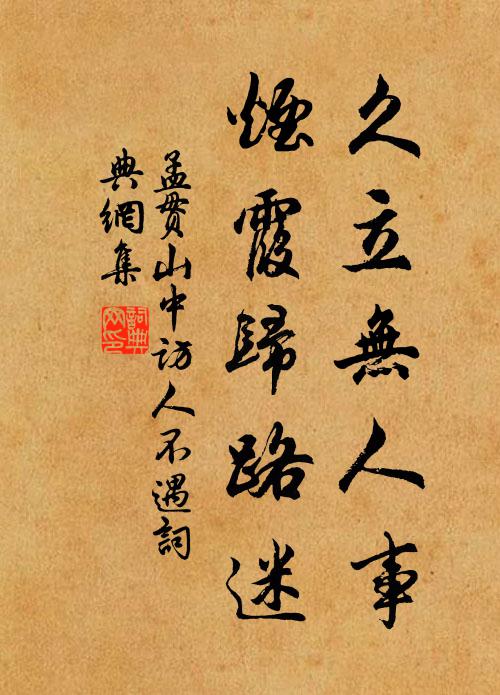 久立無人事
煙霞歸路迷
孟貫山中訪人不遇詞
典網集
詞典網印